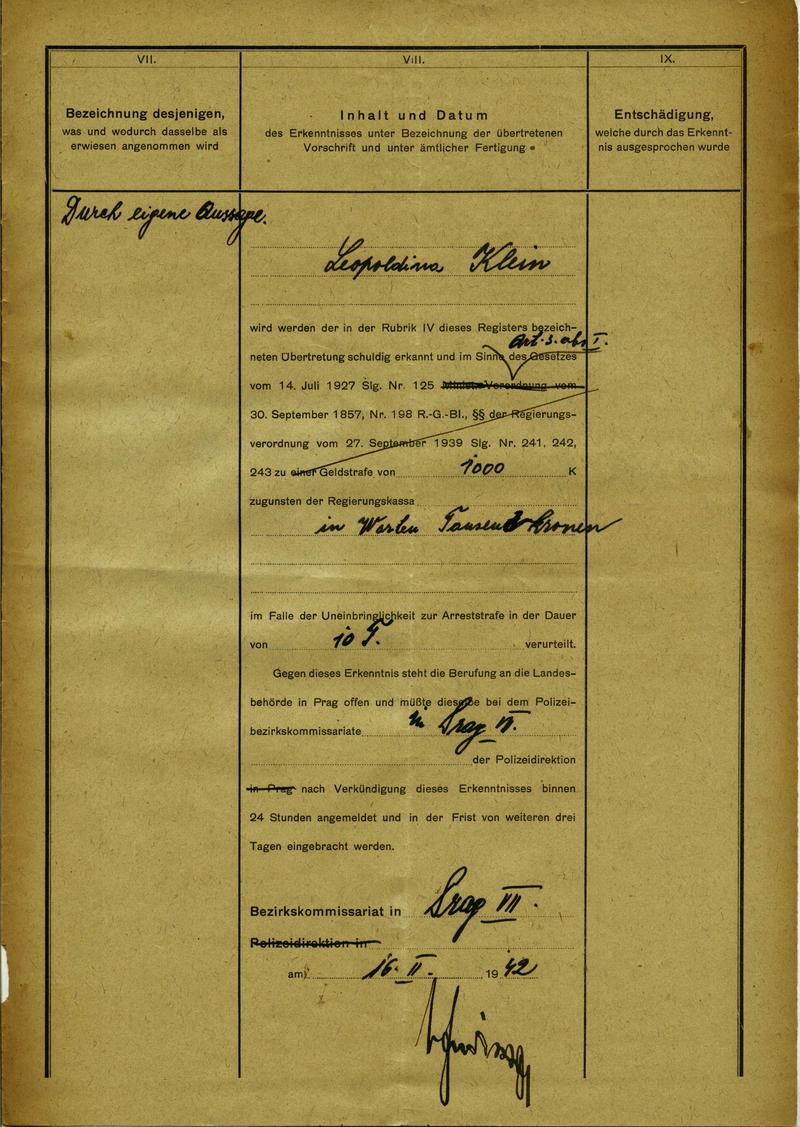 VII.
Bezeichnung desjenigen,
was und wodurch dasselbe als
erwiesen angenommen wird
VIII.
Inhalt und Datum
des Erkenntnisses unter Bezeichnung der übertretenen
Vorschrift und unter ämtlicher Fertigung
IX.
Entschädigung,
welche durch das Erkennt-
nis ausgesprochen wurde
Durch eigene Aussage.
Leopoldina Klein
wird werden der in der Rubrik IV dieses Registers bezeich-
Art. 3. abs I.
neten Übertretung schuldig erkannt und im Sinne des Gesetzes
vom 14. Juli 1927 Slg. Nr. 125 Minist.-Verordnung vom
30. September 1857, Nr. 198 R.-G.-Bl., §§ der Regierungs-
verordnung vom 27. September 1939 Slg. Nr. 241, 242,
243 zu einer Geldstrafe von 1000 K
zugunsten der Regierungskassa
in Worten Tausend Kronen
im Falle der Uneinbringlichkeit zur Arreststrafe in der Dauer
von 10 T. verurteilt.
Gegen dieses Erkenntnis steht die Berufung an die Landes-
behörde in Prag offen und müßte dieselbe bei dem Polizei-
bezirkskommissariate in Prag
der Polizeidirektion
in Prag nach Verkündigung dieses Erkenntnisses binnen
24 Stunden angemeldet und in der Frist von weiteren drei
Tagen eingebracht werden.
Bezirkskommissariat in Prag III.
Polizeidirektion in
am 16. II. 1942